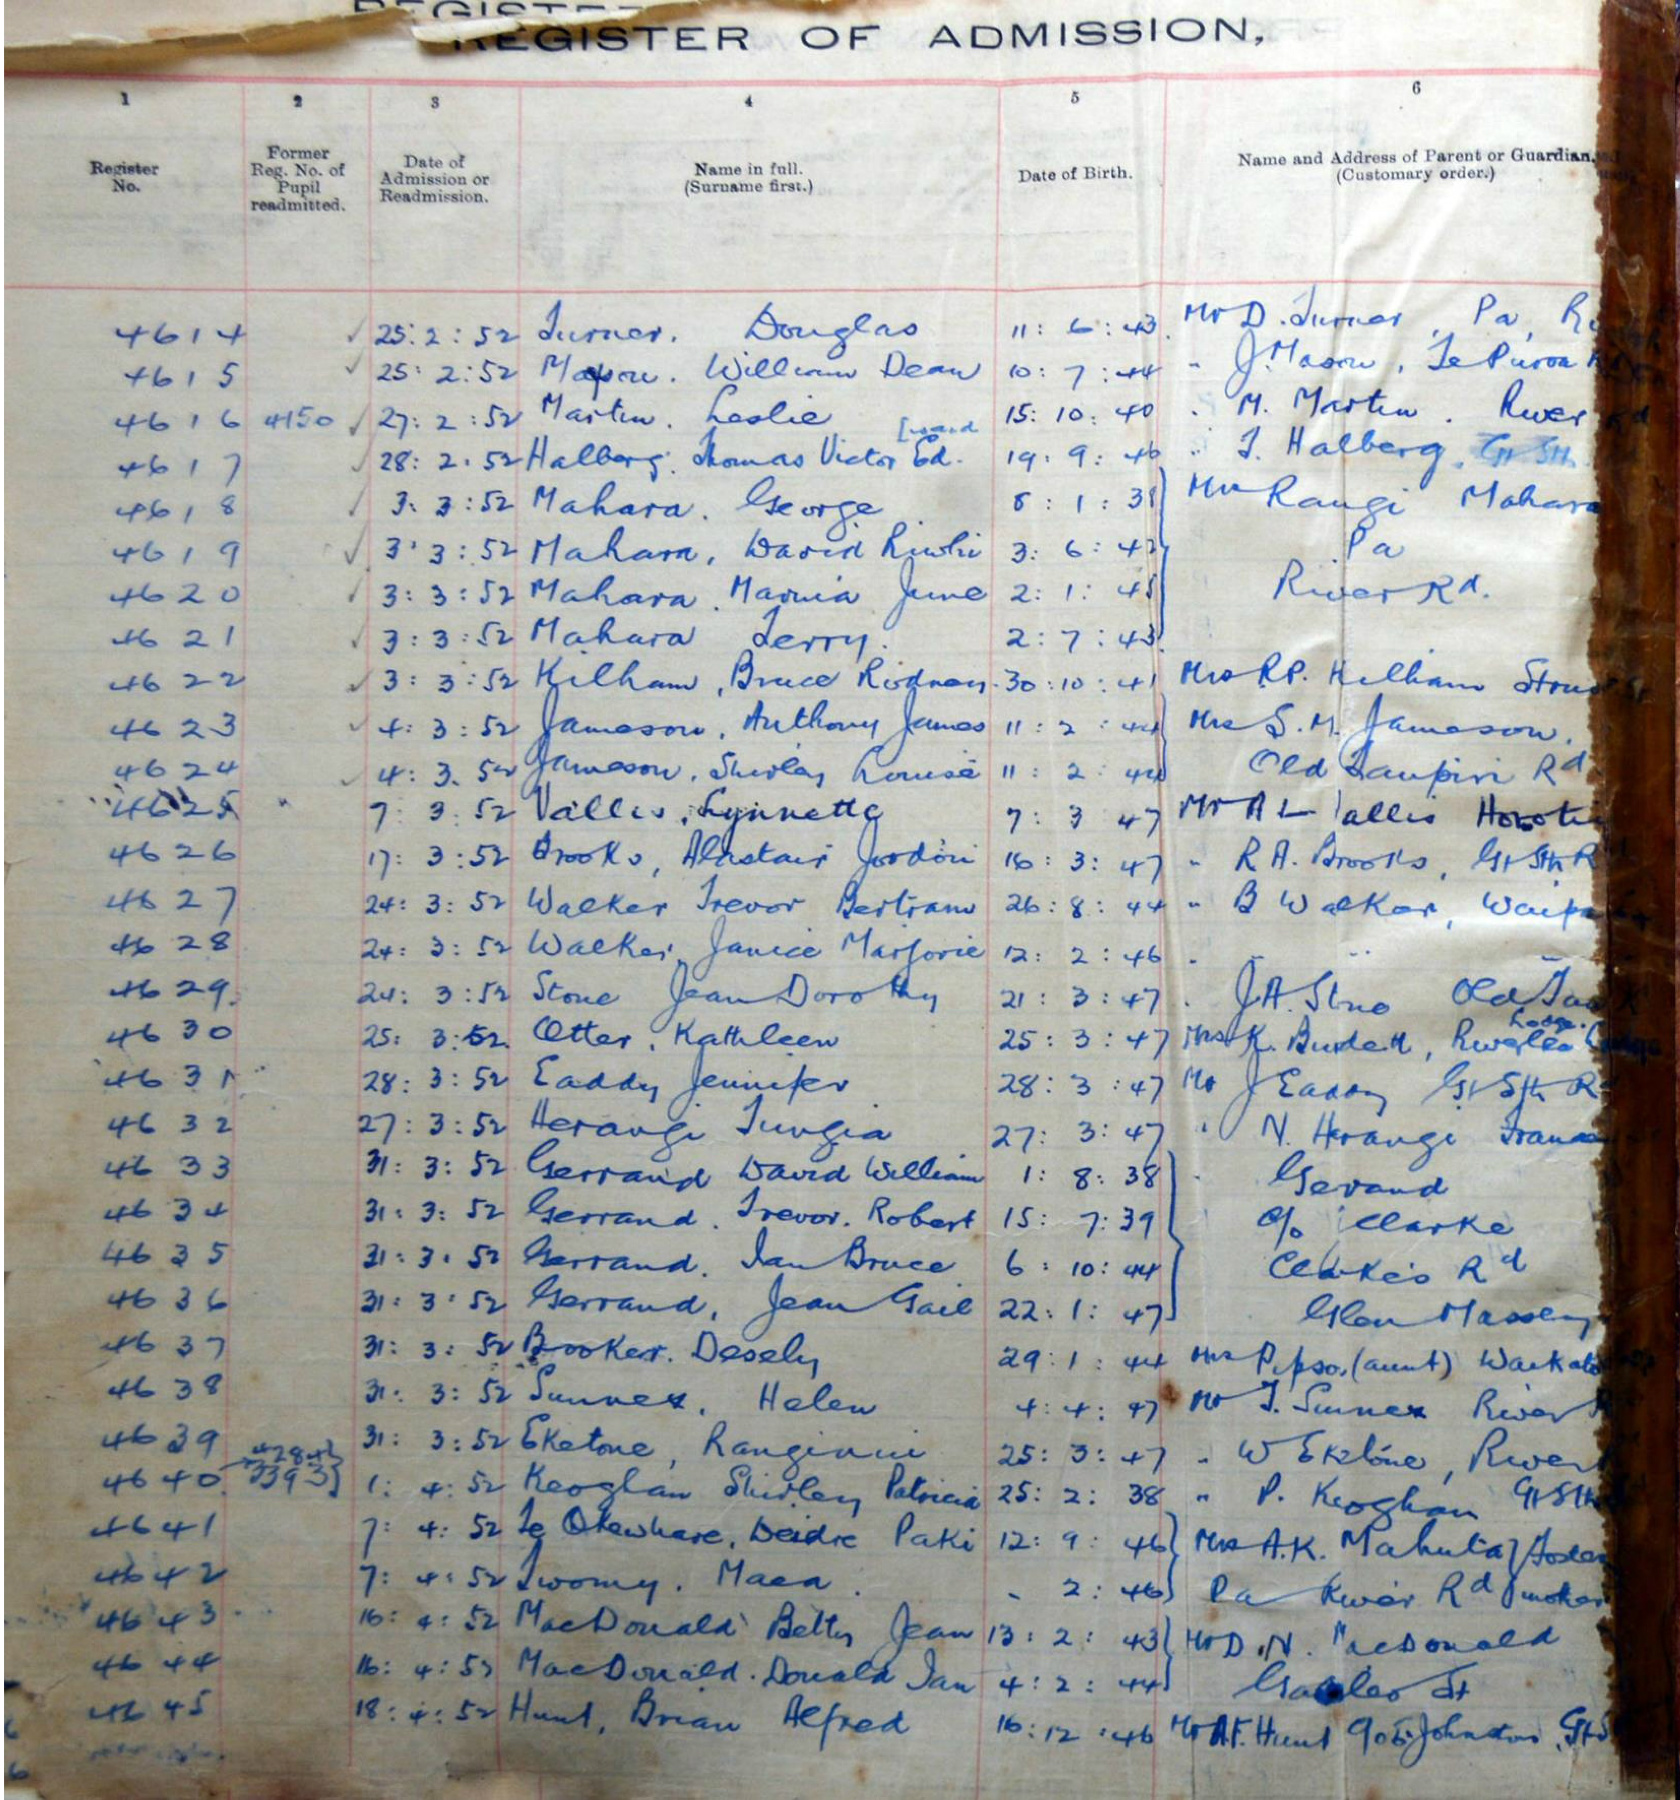 REGISTER
REGISTER OF ADMISSION,
1 2 3 4 5 6
Register No. Former Reg. No. of Pupil readmitted. Date of Admission or Readmission. Name in full. (Surname first.) Date of Birth. Name and Address of Parent or Guardian. (Customary order.)
4614 ✓ 25:2:52 Turner. Douglas 11:6:43 Mr D. Turner, Pa,
4615 ✓ 25:2:52 Mason. William Dean 10:7:44 " J. Mason, Te Puroa
4616 4150 ✓ 27:2:52 Martin. Leslie 15:10:40 " M. Martin. River Rd
[ward
4617 ✓ 28:2:52 Halberg. Thomas Victor Ed. 19:9:46 " T. Halberg. Gt Sth
4618 ✓ 3:3:52 Mahara. George 1: Mrs Rangi Mahara
4619 ✓ 3:3:52 Mahara, David 3:6:42 Pa
4620 ✓ 3:3:52 Mahara. June 2:1:45 River Rd.
4621 ✓ 3:3:52 Mahara Terry. 2:7:43
4622 ✓ 3:3:52 Kelham, Bruce Rodney 30:10:41 Mrs R.P. Kelham
4623 ✓ 4:3:52 Jameson, Anthony James 11:2:44 Mrs S.M. Jameson.
4624 ✓ 4:3:52 Jameson, Shirley Louise 11:2:44 Old Taupiri Rd.
4625 7:3:52 Vallis, Lynnette 7:3:47 Mr A L Vallis Horotiu
4626 17:3:52 Brooks, Alastair Jordon 16:3:47 " R A. Brooks, Gt Sth R
4627 24:3:52 Walker Trevor Bertram 26:8:44 " B Walker, Waipa
4628 24:3:52 Walker, Janice Marjorie 12:2:46 " "
4629. 24:3:52 Stone Jean Dorothy 21:3:47 " J A. Old
4630 25:3:52. Otter, Kathleen 25:3:47 Mrs K. Burdett,
4631 28:3:52 Eaddy Jennifer 28:3:47 Mr J Eaddy Gt Sth R
4632 27:3:52 Herangi Tungia 27:3:47 " N. Herangi
4633 31:3:52 Gerrand David William 1:8:38 " Gerrand
4634 31:3:52 Gerrand. Trevor. Robert 15:7:39 c/o Clarke
4635 31:3:52 Gerrand. Ian Bruce 6:10:44 Clarke's Rd
4636 31:3:52 Gerrand, Jean Gail 22:1:47 Glen Massey
4637 31:3:52 Booker. Desely 29:1:44 Mrs (aunt) Waikato
4638 31:3:52 Sunnex. Helen 4:4:47 Mr T. Sunnex River
4639 31:3:52 Eketone, 25:3:47 " W Eketone, River
4640 4284 3393} 1:4:52 Keoghan Shirley Patricia 25:2:38 " P. Keoghan Gt Sth
4641 7:4:52 Te Okewhare, Deidre Paki 12:9:46 Mrs A.K. Mahuta} Foster
4642 7:4:52 Twomy. Maea. - 2:46 Pa River Rd mother
4643 16:4:52 MacDonald Betty Jean 13:2:43 Mr D.N. MacDonald
4644 16:4:52 MacDonald. Donald Ian 4:2:44 St
4645 18:4:52 Hunt, Brian Alfred 16:12:46 Mr A.F. Hunt Johnston,